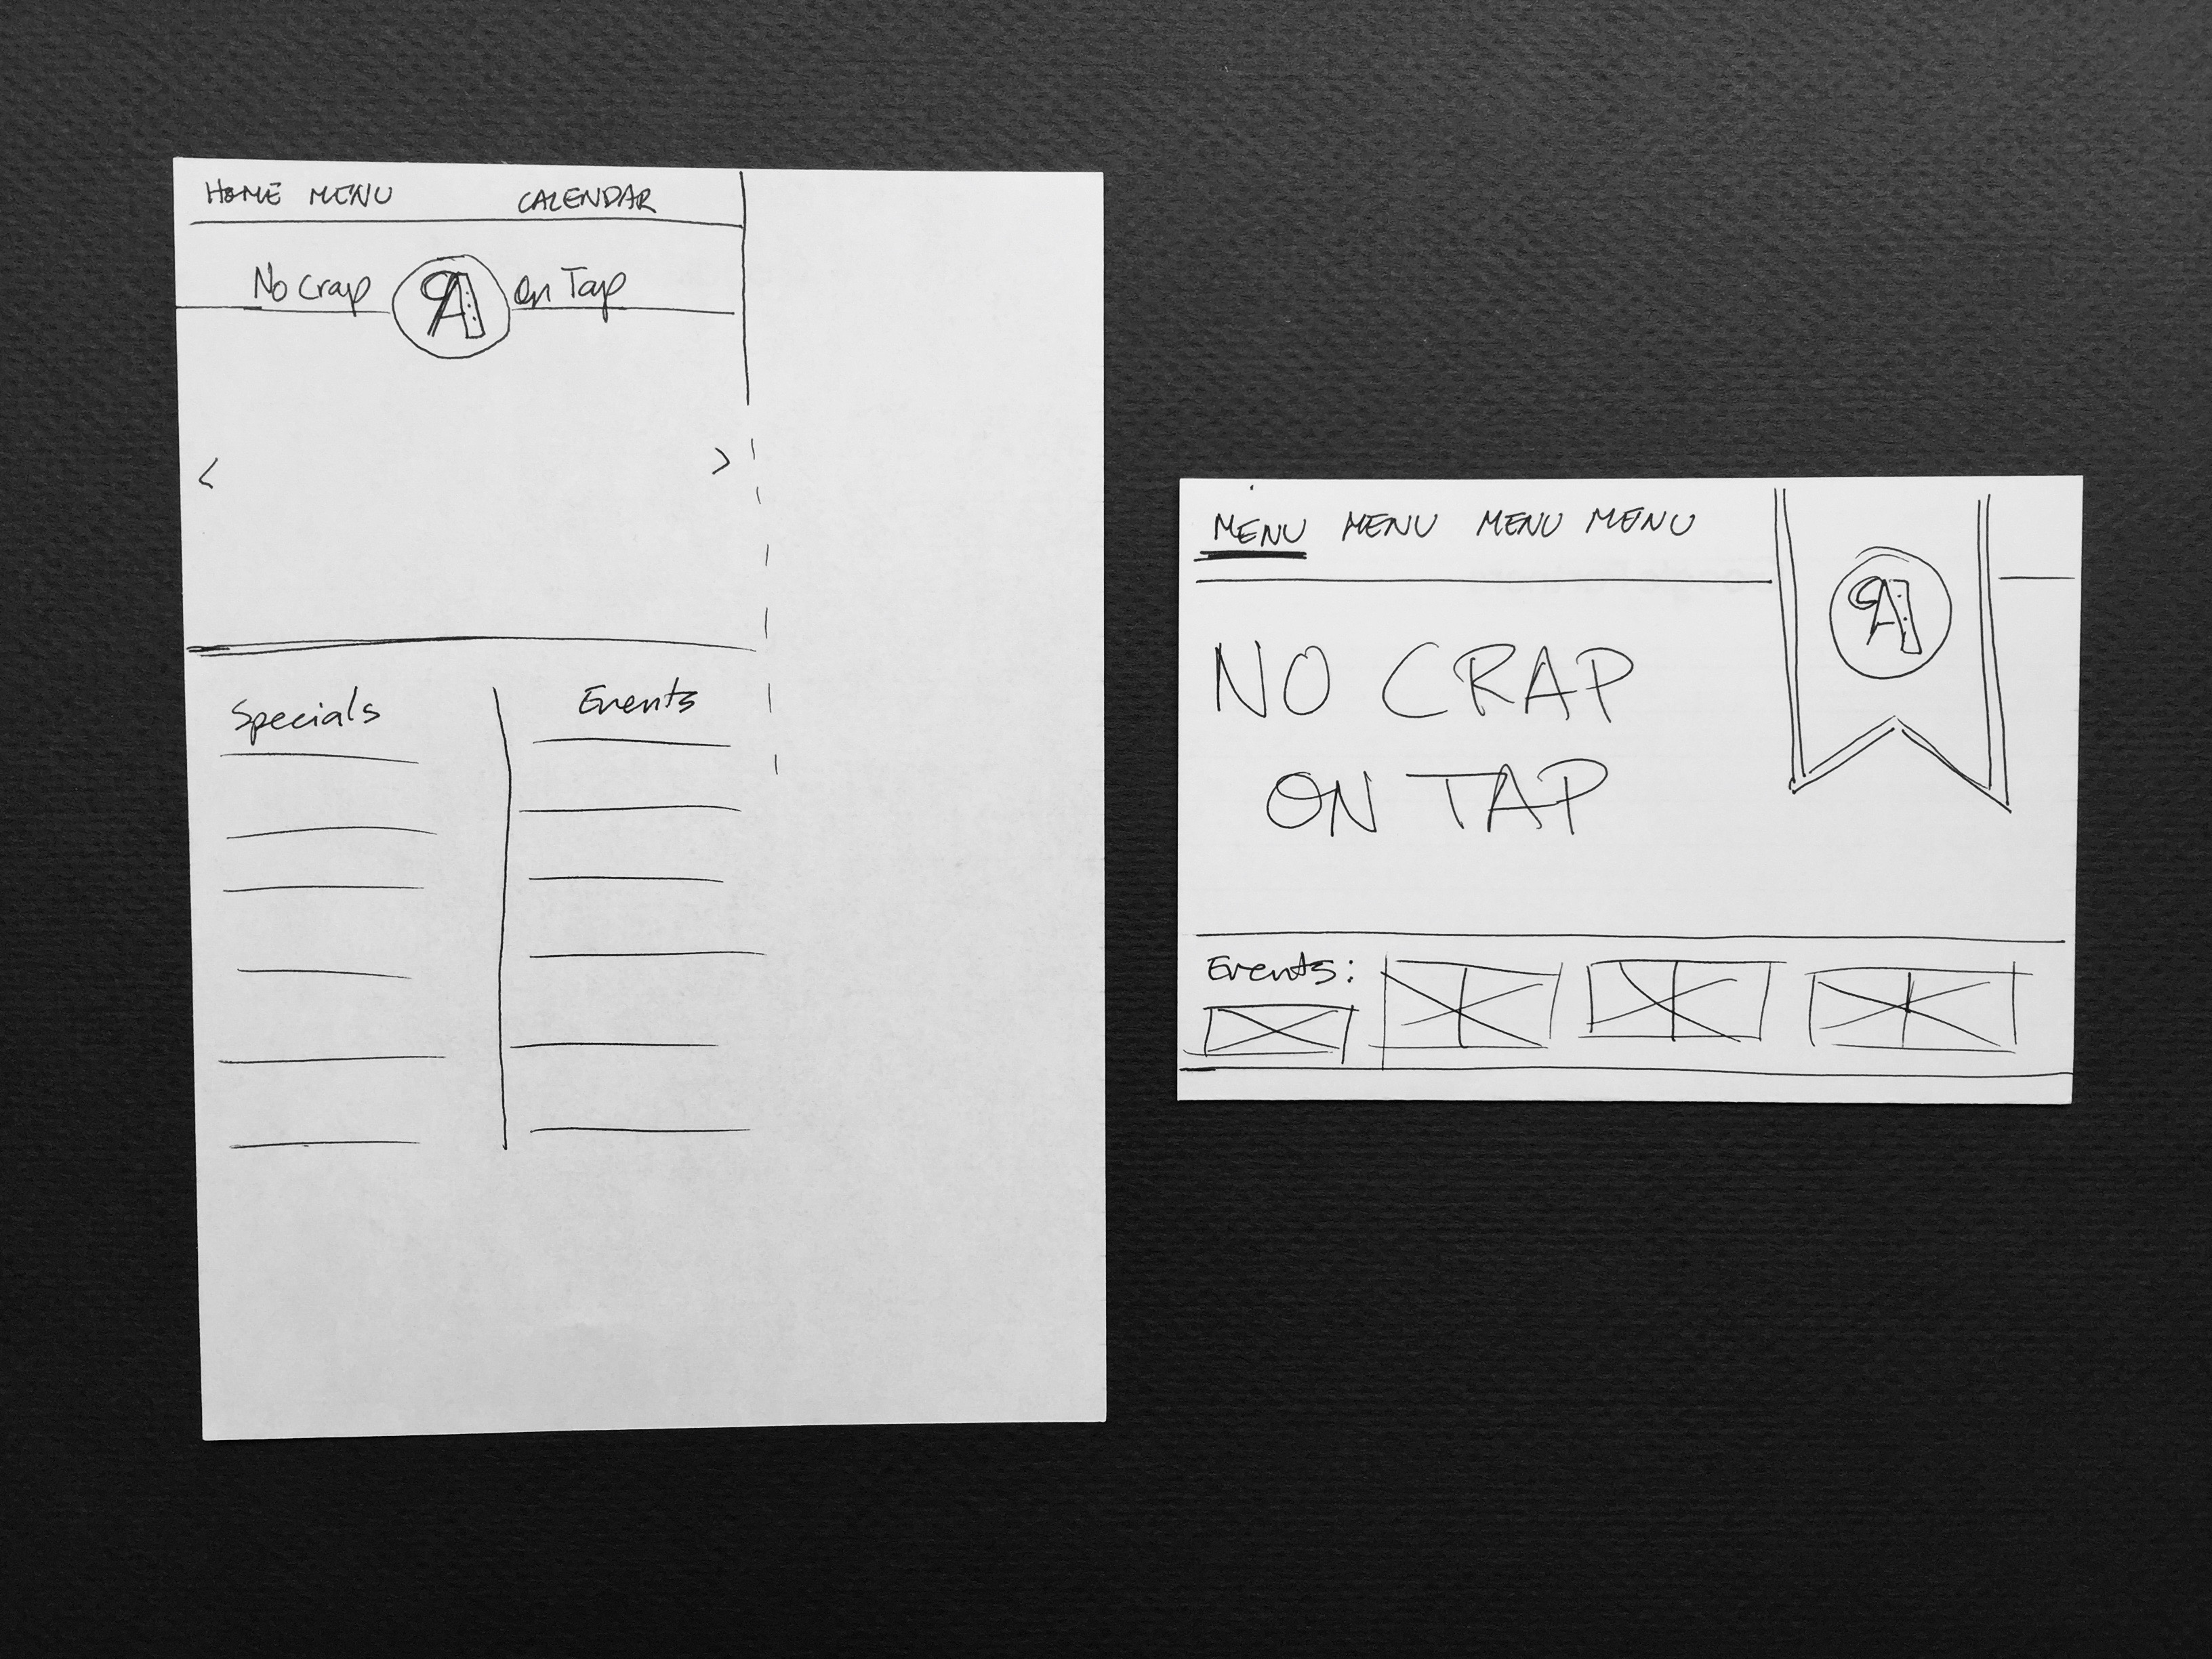 HOME MENU CALENDAR
No Crap on Tap
< >
Specials Events
MENU MENU MENU MENU
NO CRAP
ON TAP
Events: